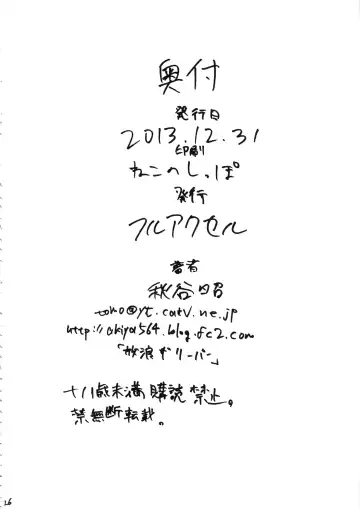 奥付
発行日
2013.12.31
印刷
ねこのしっぽ
発行
フルアクセル
著者
秋谷昭
tomo@yt.catv.ne.jp
http://akiya564.blog.fc2.com
「放浪ギリーバー」
十八歳未満購読禁止。
禁無断転載。
26